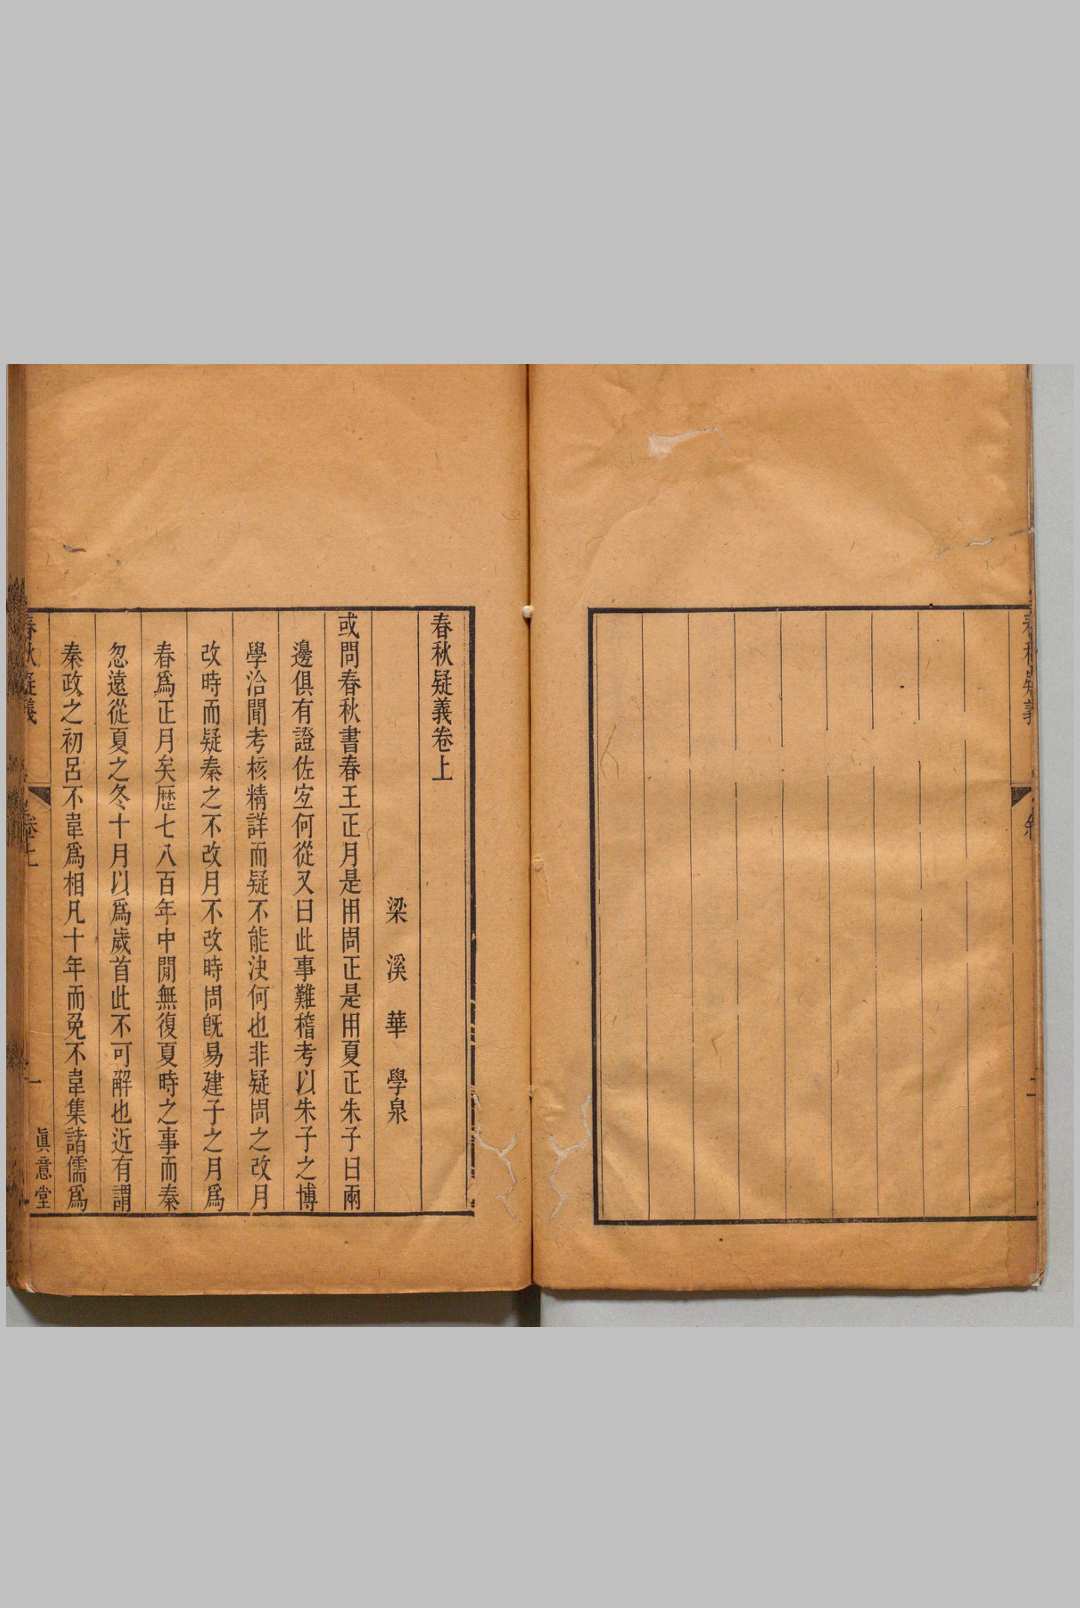 春秋疑義
春秋疑義卷上
梁溪華學泉
或問春秋書春王正月是用周正是用夏正朱子曰兩
邊俱有證佐宐何從又曰此事難稽考以朱子之博
學洽聞考核精詳而疑不能決何也非疑周之改月
改時而疑秦之不改月不改時周旣易建子之月爲
春爲正月矣歷七八百年中閒無復夏時之事而秦
忽遠從夏之冬十月以爲歲首此不可解也近有謂
秦政之初呂不韋爲相凡十年而免不韋集諸儒爲
春秋疑義
卷上
一
眞意堂